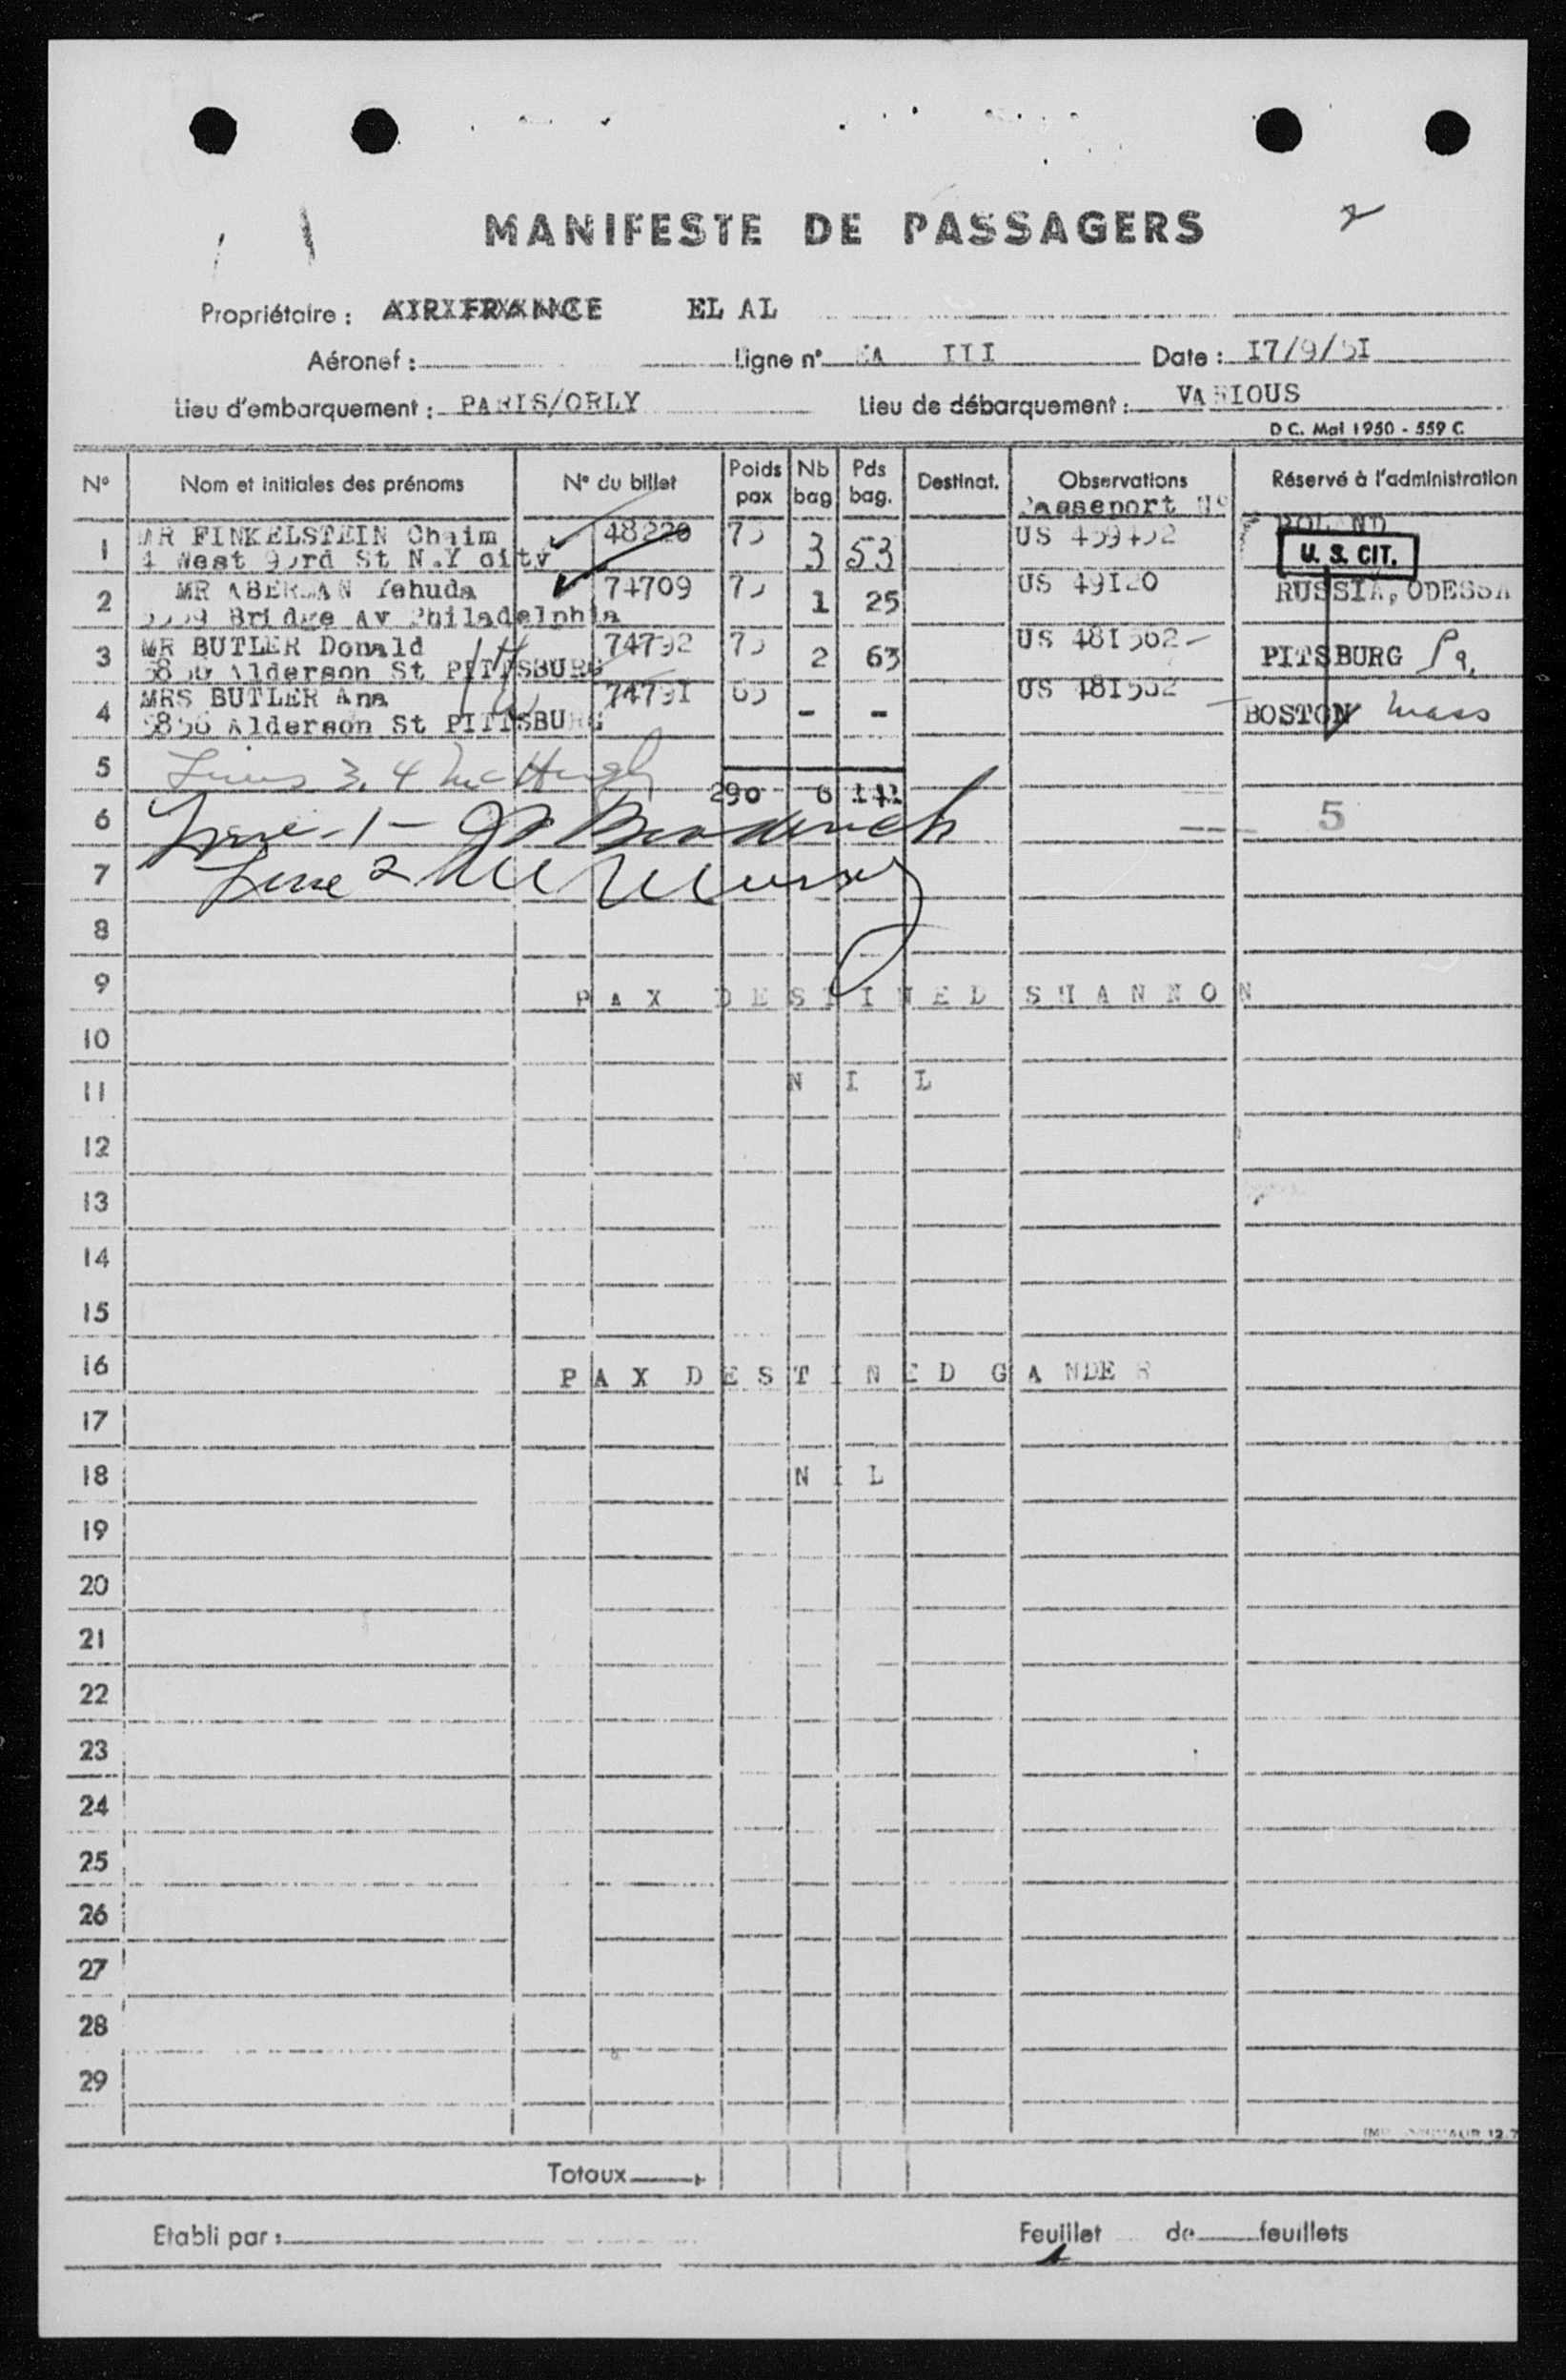 MANIFESTE DE PASSAGERS
Propriétaire : AIR FRANCE EL AL
Aéronef : Ligne n° III Date : I7/9/5I
Lieu d'embarquement : PARIS/ORLY Lieu de débarquement : VARIOUS
D C. Mai 1950 - 559 C
N° Nom et initiales des prénoms N° du billet Poids pax Nb bag Pds bag. Destinat. Observations Réservé à l'administration
Passeport N°
1 MR FINKELSTEIN Chaim 48220 75 3 53 US POLAND
West 93rd St N.Y city U. S. CIT.
2 MR Yehuda 74709 75 1 25 US RUSSIA, ODESSA
Bridge Av Philadelphia
3 MR BUTLER Donald 74792 75 2 63 US PITSBURG Pa,
Alderson St PITTSBURG
4 MRS BUTLER Ana 74791 65 - - US BOSTON Mass
5856 Alderson St PITTSBURG
5 Lines 3, 4 McHugh
290 6 141
6 Line - 1 - 5
7 Line 2
8
9 PAX DESTINED SHANNON
10
11 NIL
12
13
14
15
16 PAX DESTINED GANDER
17
18 NIL
19
20
21
22
23
24
25
26
27
28
29
Totaux
Etabli par : Feuillet de feuillets
1